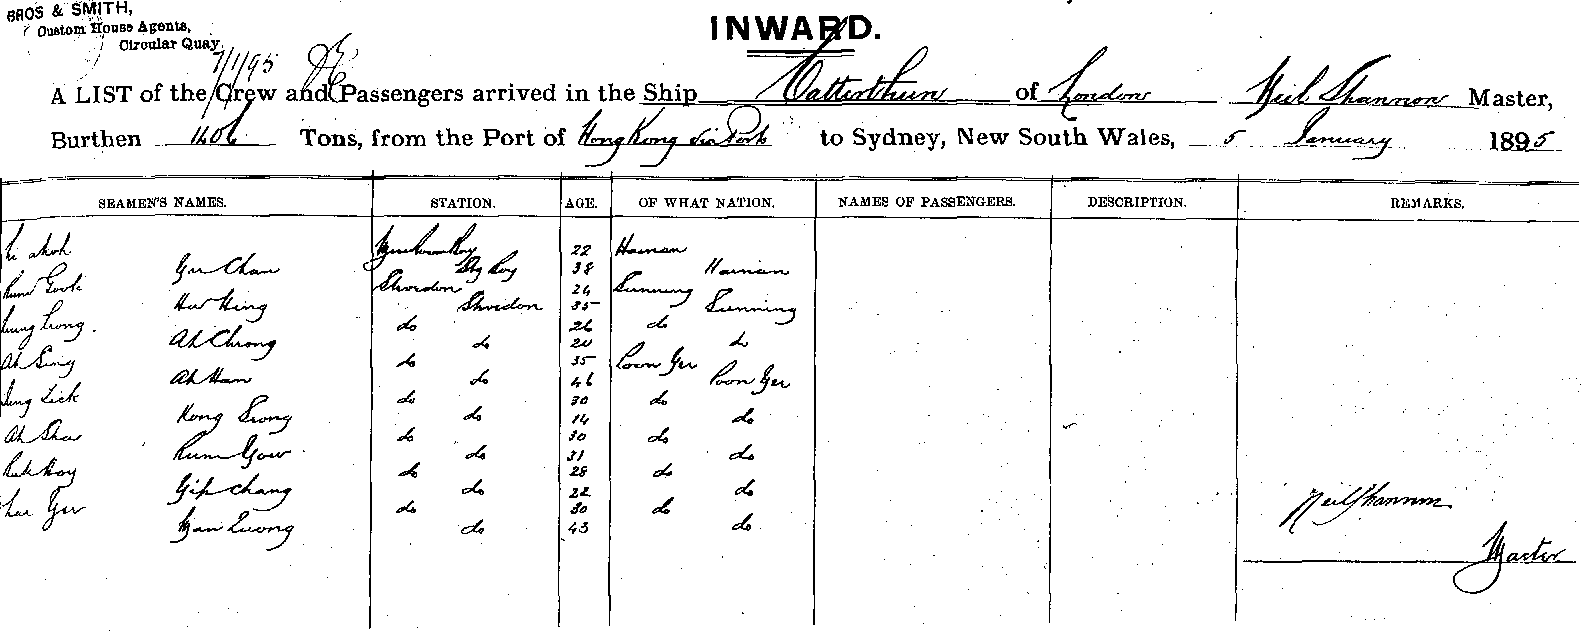 BROS & SMITH,
Custom House Agents,
Circular Quay.
INWARD.
7/1/95
A LIST of the Crew and Passengers arrived in the Ship Catterthun of London Neil Shannon Master,
Burthen 1406 Tons, from the Port of Hong Kong via Ports to Sydney, New South Wales, 5 January 1895
SEAMEN'S NAMES. STATION. AGE. OF WHAT NATION. NAMES OF PASSENGERS. DESCRIPTION. REMARKS.
22 Hainan
Yee Chan Boy 38 Hainan
24 Sunning
Hing 35 Sunning
do 26 do
Ah Chong do 20 do
Ah Sing do 35 Poon Yee
Ah Ham do 46 Poon Yee
do 30 do
Kong Siong do 14 do
Ah Shu do 30 do
Kum Yow do 31 do
do 28 do
Yip Chang do 22 do
do 30 do
do 43 do
Neil Shannon
Master